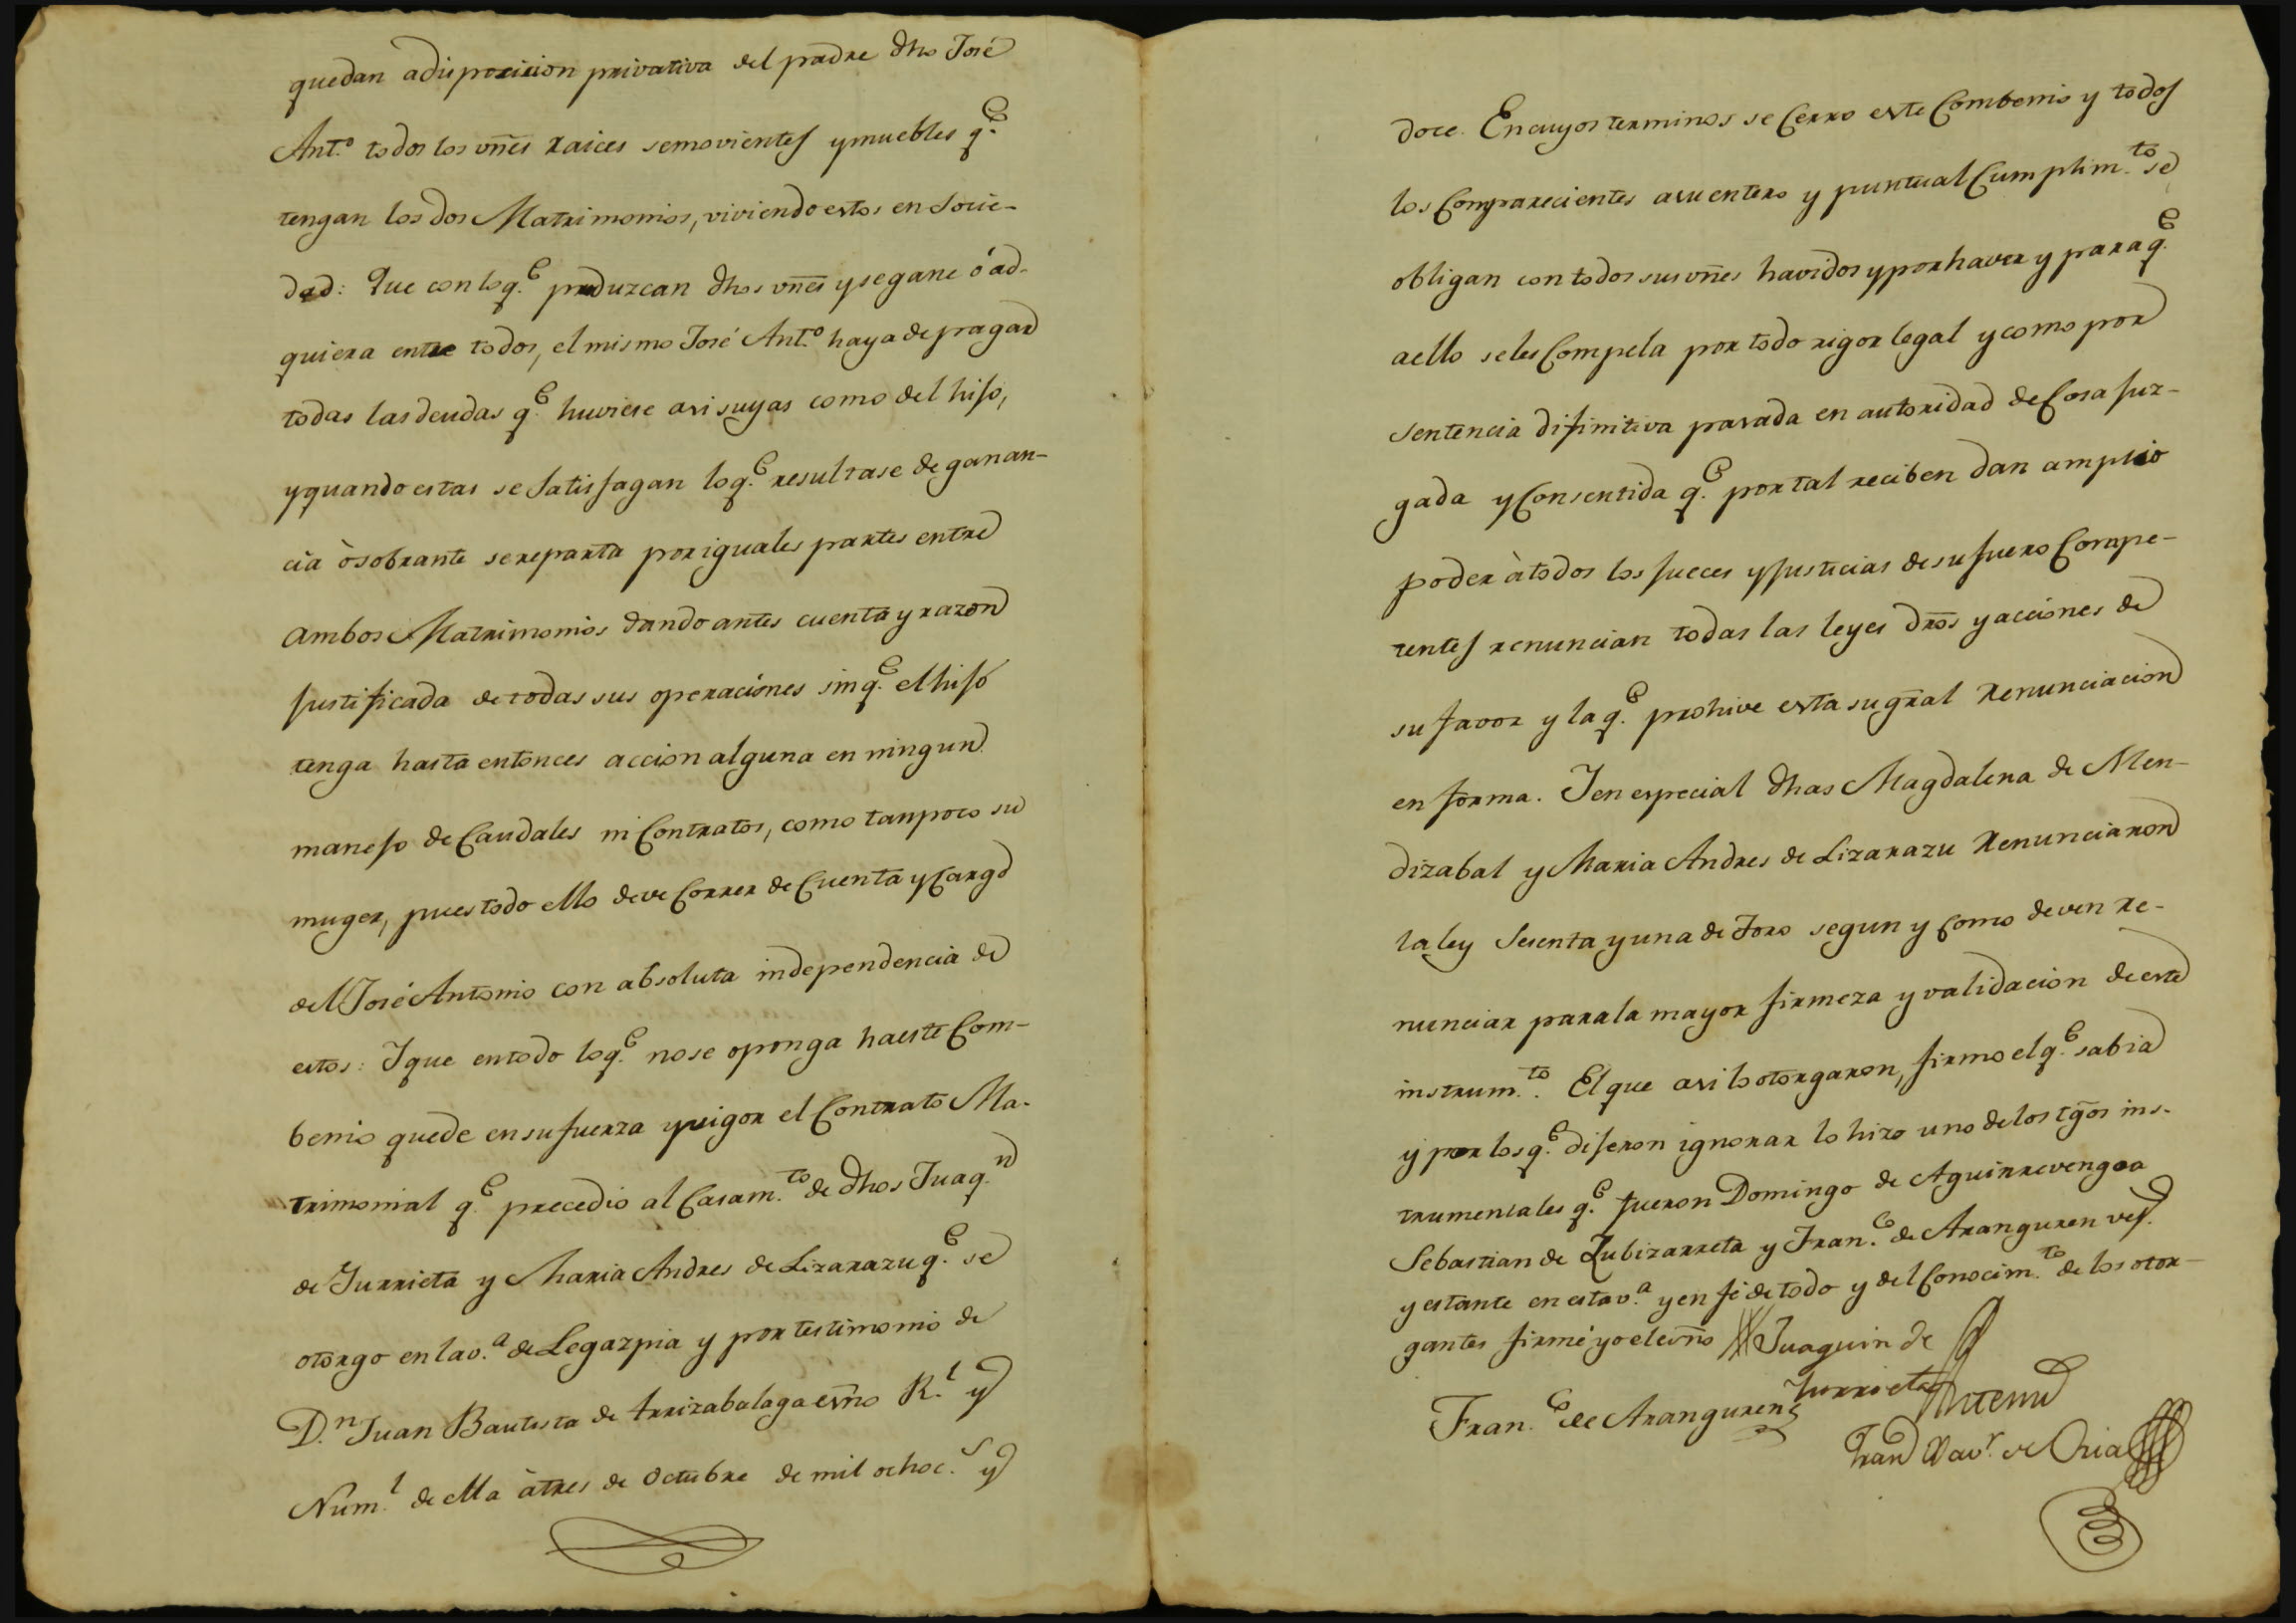 quedan adisposicion privativa del padre dho José
Ant.º todos los vñes raices semovientes y muebles q.e
tengan los dos Matrimonios, viviendo estos en Socie-
dad: Que con loq.e produzcan dhos vñes y se gane ó ad-
quiera entre todos, el mismo José Ant.º haya de pagar
todas las deudas q.e huviere asi suyas como del hijo,
y quando estas se Satisfagan loq.e resultase de ganan-
cia ò sobrante se reparta por iguales partes entre
ambos Matrimonios dando antes cuenta y razon
justificada de todas sus operaciónes sin q.e el hijo
tenga hasta entonces accion alguna en ningun
manejo de Caudales ni Contratos, como tanpoco su
muger, pues todo ello deve Correr de Cuenta y Cargo
del José Antonio con absoluta independencia de
estos: Y que en todo loq.e no se oponga haeste Com-
benio quede en su fuerza y vigor el Contrato Ma-
trimonial q.e precedio al Casam.to de dhos Juaq.n
de Yurrieta y Maria Andres de Lizarazu q.e se
otorgo en la v.a de Legazpia y por testimonio de
D.n Juan Bautista de Arrizabalaga esño R.l y
Num.l de ella à tres de Octubre de mil ochoc.s y
doce. En cuyos terminos se Cerro este Combenio y todos
los Comparecientes a su entero y puntual Cumplim.to se
obligan con todos sus vñes havidos y por haver y para q.e
a ello se les Compela por todo rigor legal y como por
Sentencia difinitiva pasada en autoridad de Cosa juz-
gada y Consentida q.e por tal reciben dan amplio
poder à todos los jueces y justicias de su fuero Compe-
tentes renuncian todas las leyes dr̃os y acciones de
su favor y la q.e prohive esta su gr̃al Renunciacion
en forma. Y en especial dhas Magdalena de Men-
dizabal y Maria Andres de Lizarazu Renunciaron
la ley Sesenta y una de Toro segun y como deven re-
nunciar para la mayor firmeza y validacion de este
instrum.to. El que asi lo otorgaron, firmo el q.e sabia
y por los q.e dijeron ignorar lo hizo uno de los tg̃os ins-
trumentales q.e fueron Domingo de Aguirrevengoa
Sebastian de Zubizarreta y Fran.co de Aranguren ves.
y estante en esta v.a y en fé de todo y del Conocim.to de los otor-
gantes firmé yo el esño Juaquin de
Yurrieta
Fran.co de Aranguren Antemi
Fran Xav.r de Oria